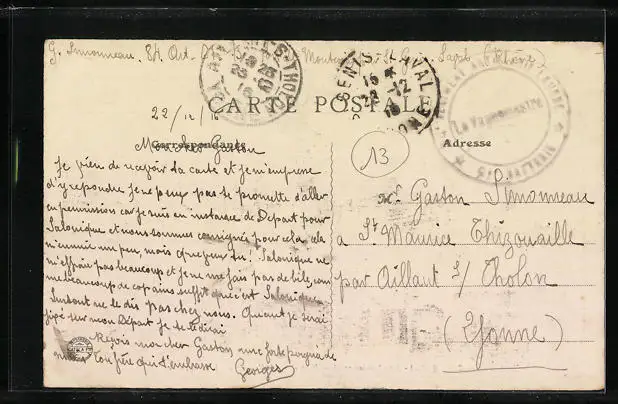 G. Simonneau. 8
CARTE POSTALE
22/12/16
Correspondance
Adresse
Mon cher Gaston
Je vien de recevoir ta carte et je m'empresse
d'y repondre je ne peux pas te promettre d'aller
en permission car je suis en instance de Depart pour
Salonique et nous sommes consignés pour cela cela
m'ennuie un peu, mais que veux tu! Salonique ne
m'effraie pas beaucoup et je ne me fais pas de bile, com
me beaucoup de copains suffit que c'est Salonique
Surtout ne le dis pas chez nous. Quant je serai
fixé sur mon Départ je te le dirai
Reçois mon cher Gaston une forte poignée de
ton frère qui t'embrasse
Georges
13
Mr Gaston Simonneau
a St Maurice Thizouaille
par Aillant s/ Tholon
(Yonne)
SENIS-LAVAL
15
22-12
16
RHONE
Le Vaguemestre